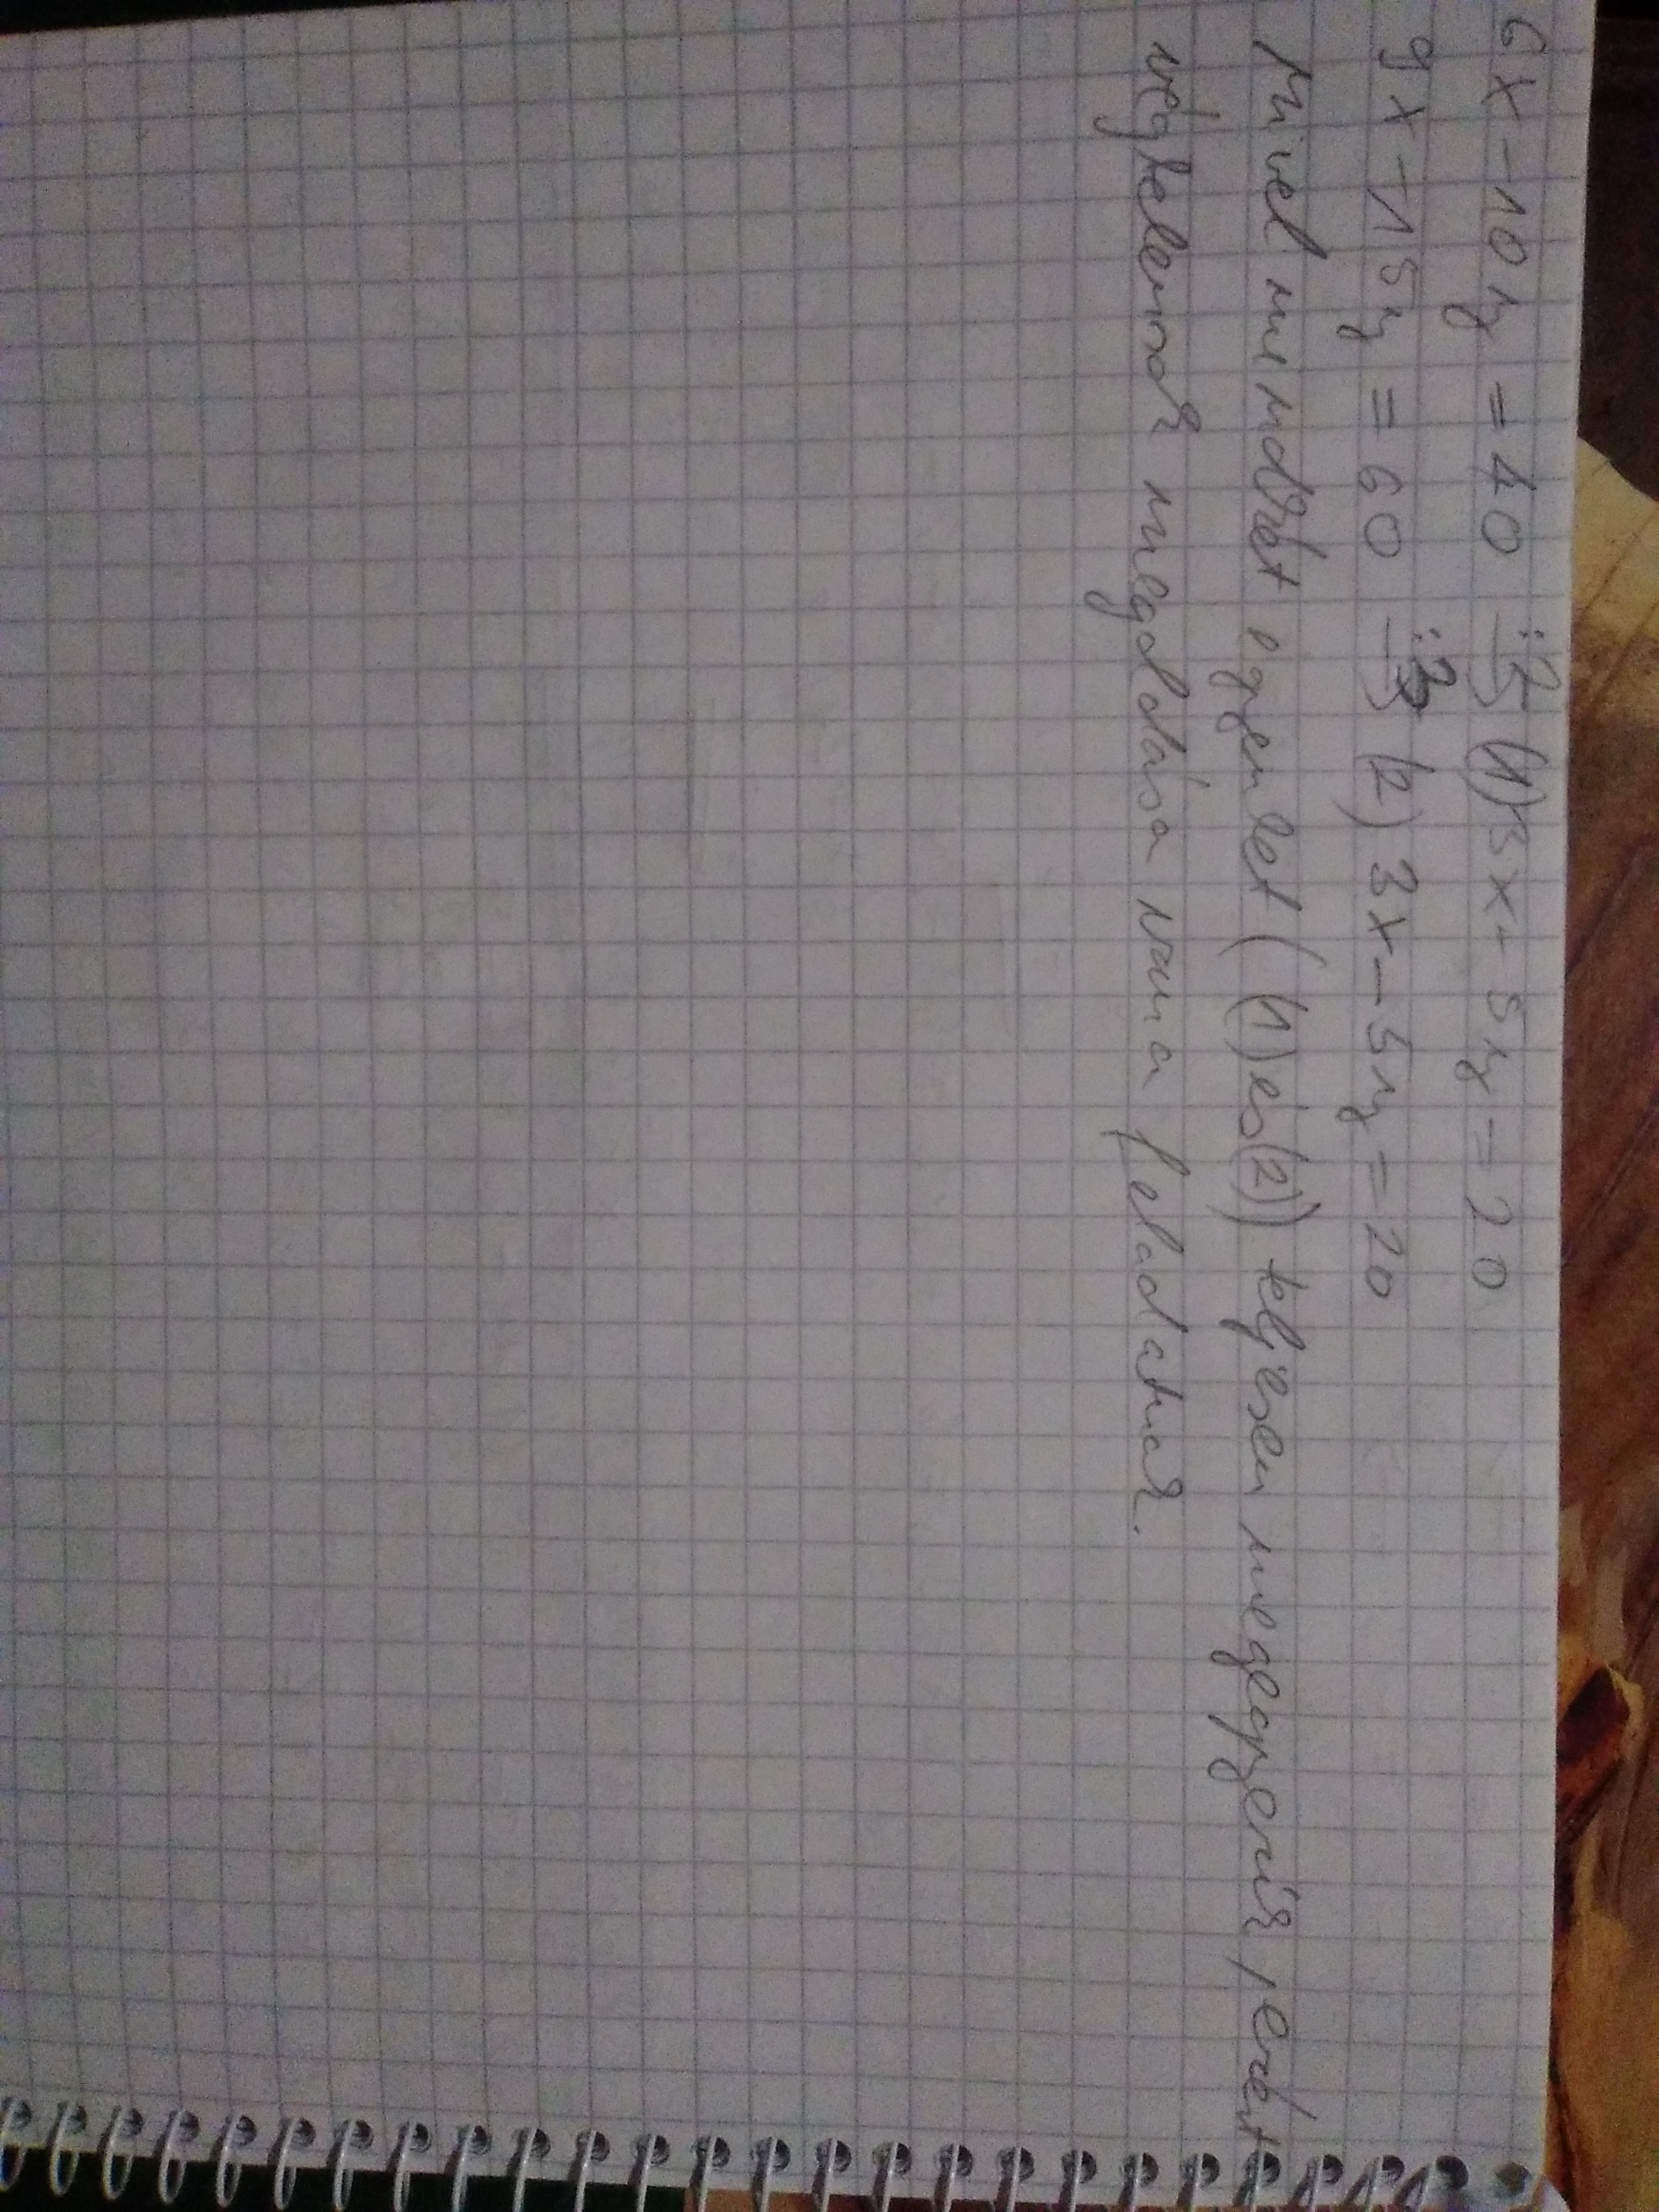 6x-10y=40 :2 (1) 3x-5y=20
9x-15y=60 :3 (2) 3x-5y=20
Mivel mindkét egyenlet ((1) és (2)) teljesen megegyezik, ezért
végtelenok megoldása van a feladatnak.